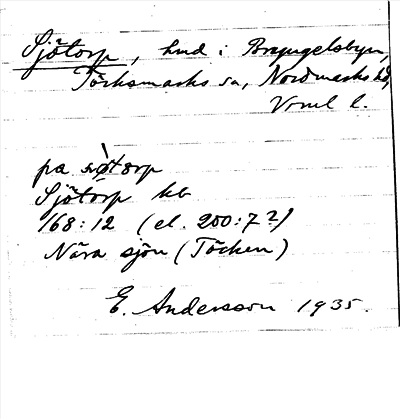 Sjötorp, hmd i Bryngelsbyn,
Töcksmarks sn, Nordmarks hd,
Vrml l.
pa
Sjötorp kb
168:12 (el. 200:7?)
Nära sjön (Töcken)
E. Andersson 1935.